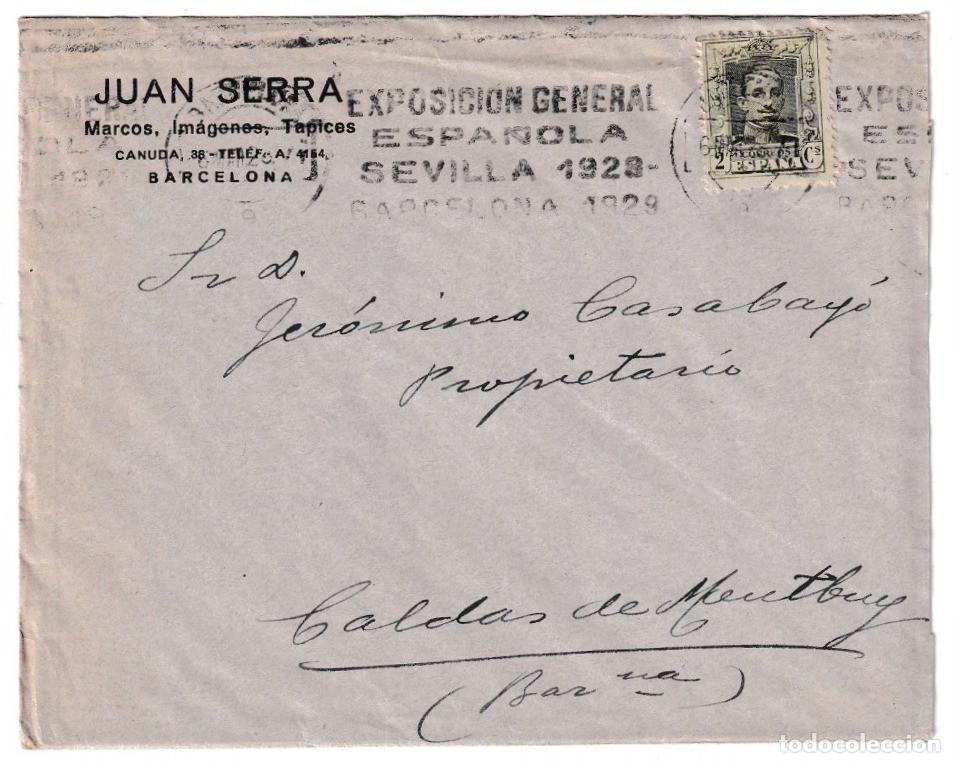 JUAN SERRA
Marcos, Imágenes, Tapices
CANUDA, 38 - TELÉF. A. 4154
BARCELONA
EXPOSICION GENERAL
ESPAÑOLA
SEVILLA 1928-
BARCELONA 1929
EXPOS
ES
SEV
BARC
Sr D.
Jerónimo Casabayó
Propietario
Caldas de Montbuy
(Barna)
todocoleccion